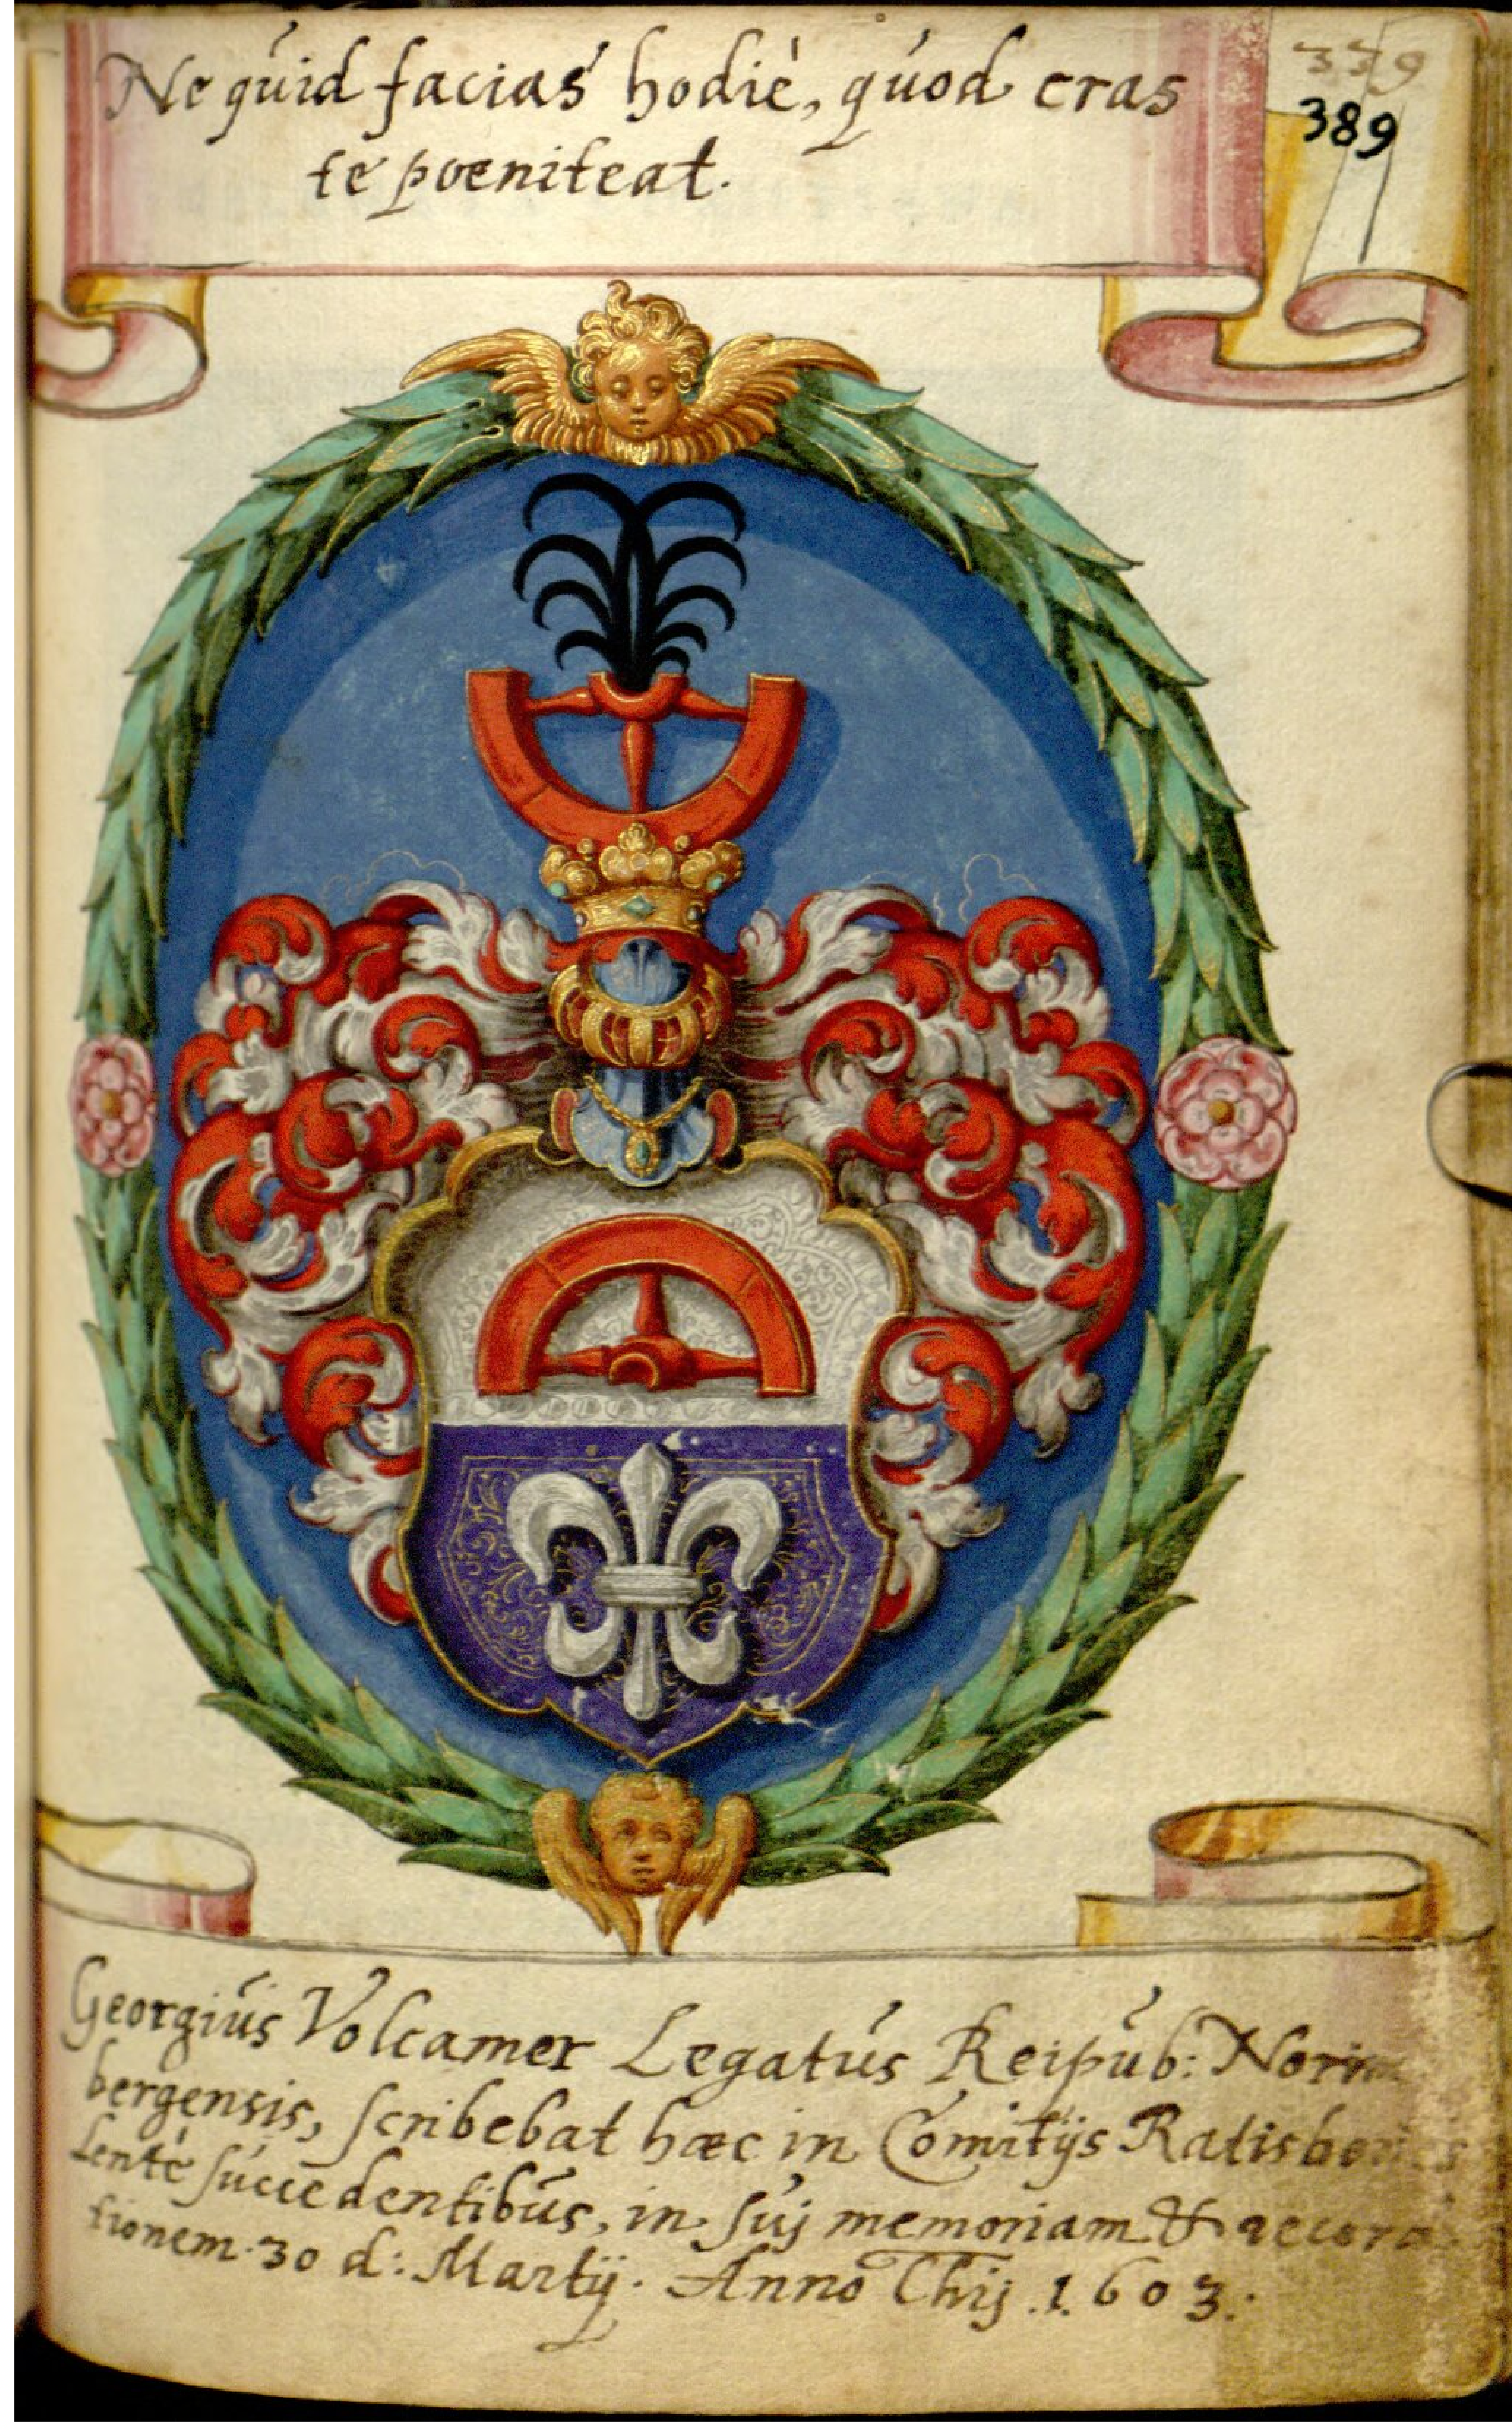 339
389
Ne quid facias hodiè, quod cras
te poeniteat.
Georgius Volcamer Legatus Reipub: Norim
bergensis, scribebat hæc in Comitijs
Lentè succedentibus, in suj memoriam &
tionem. 30 d: Martij. Anno Chrj. 1603.